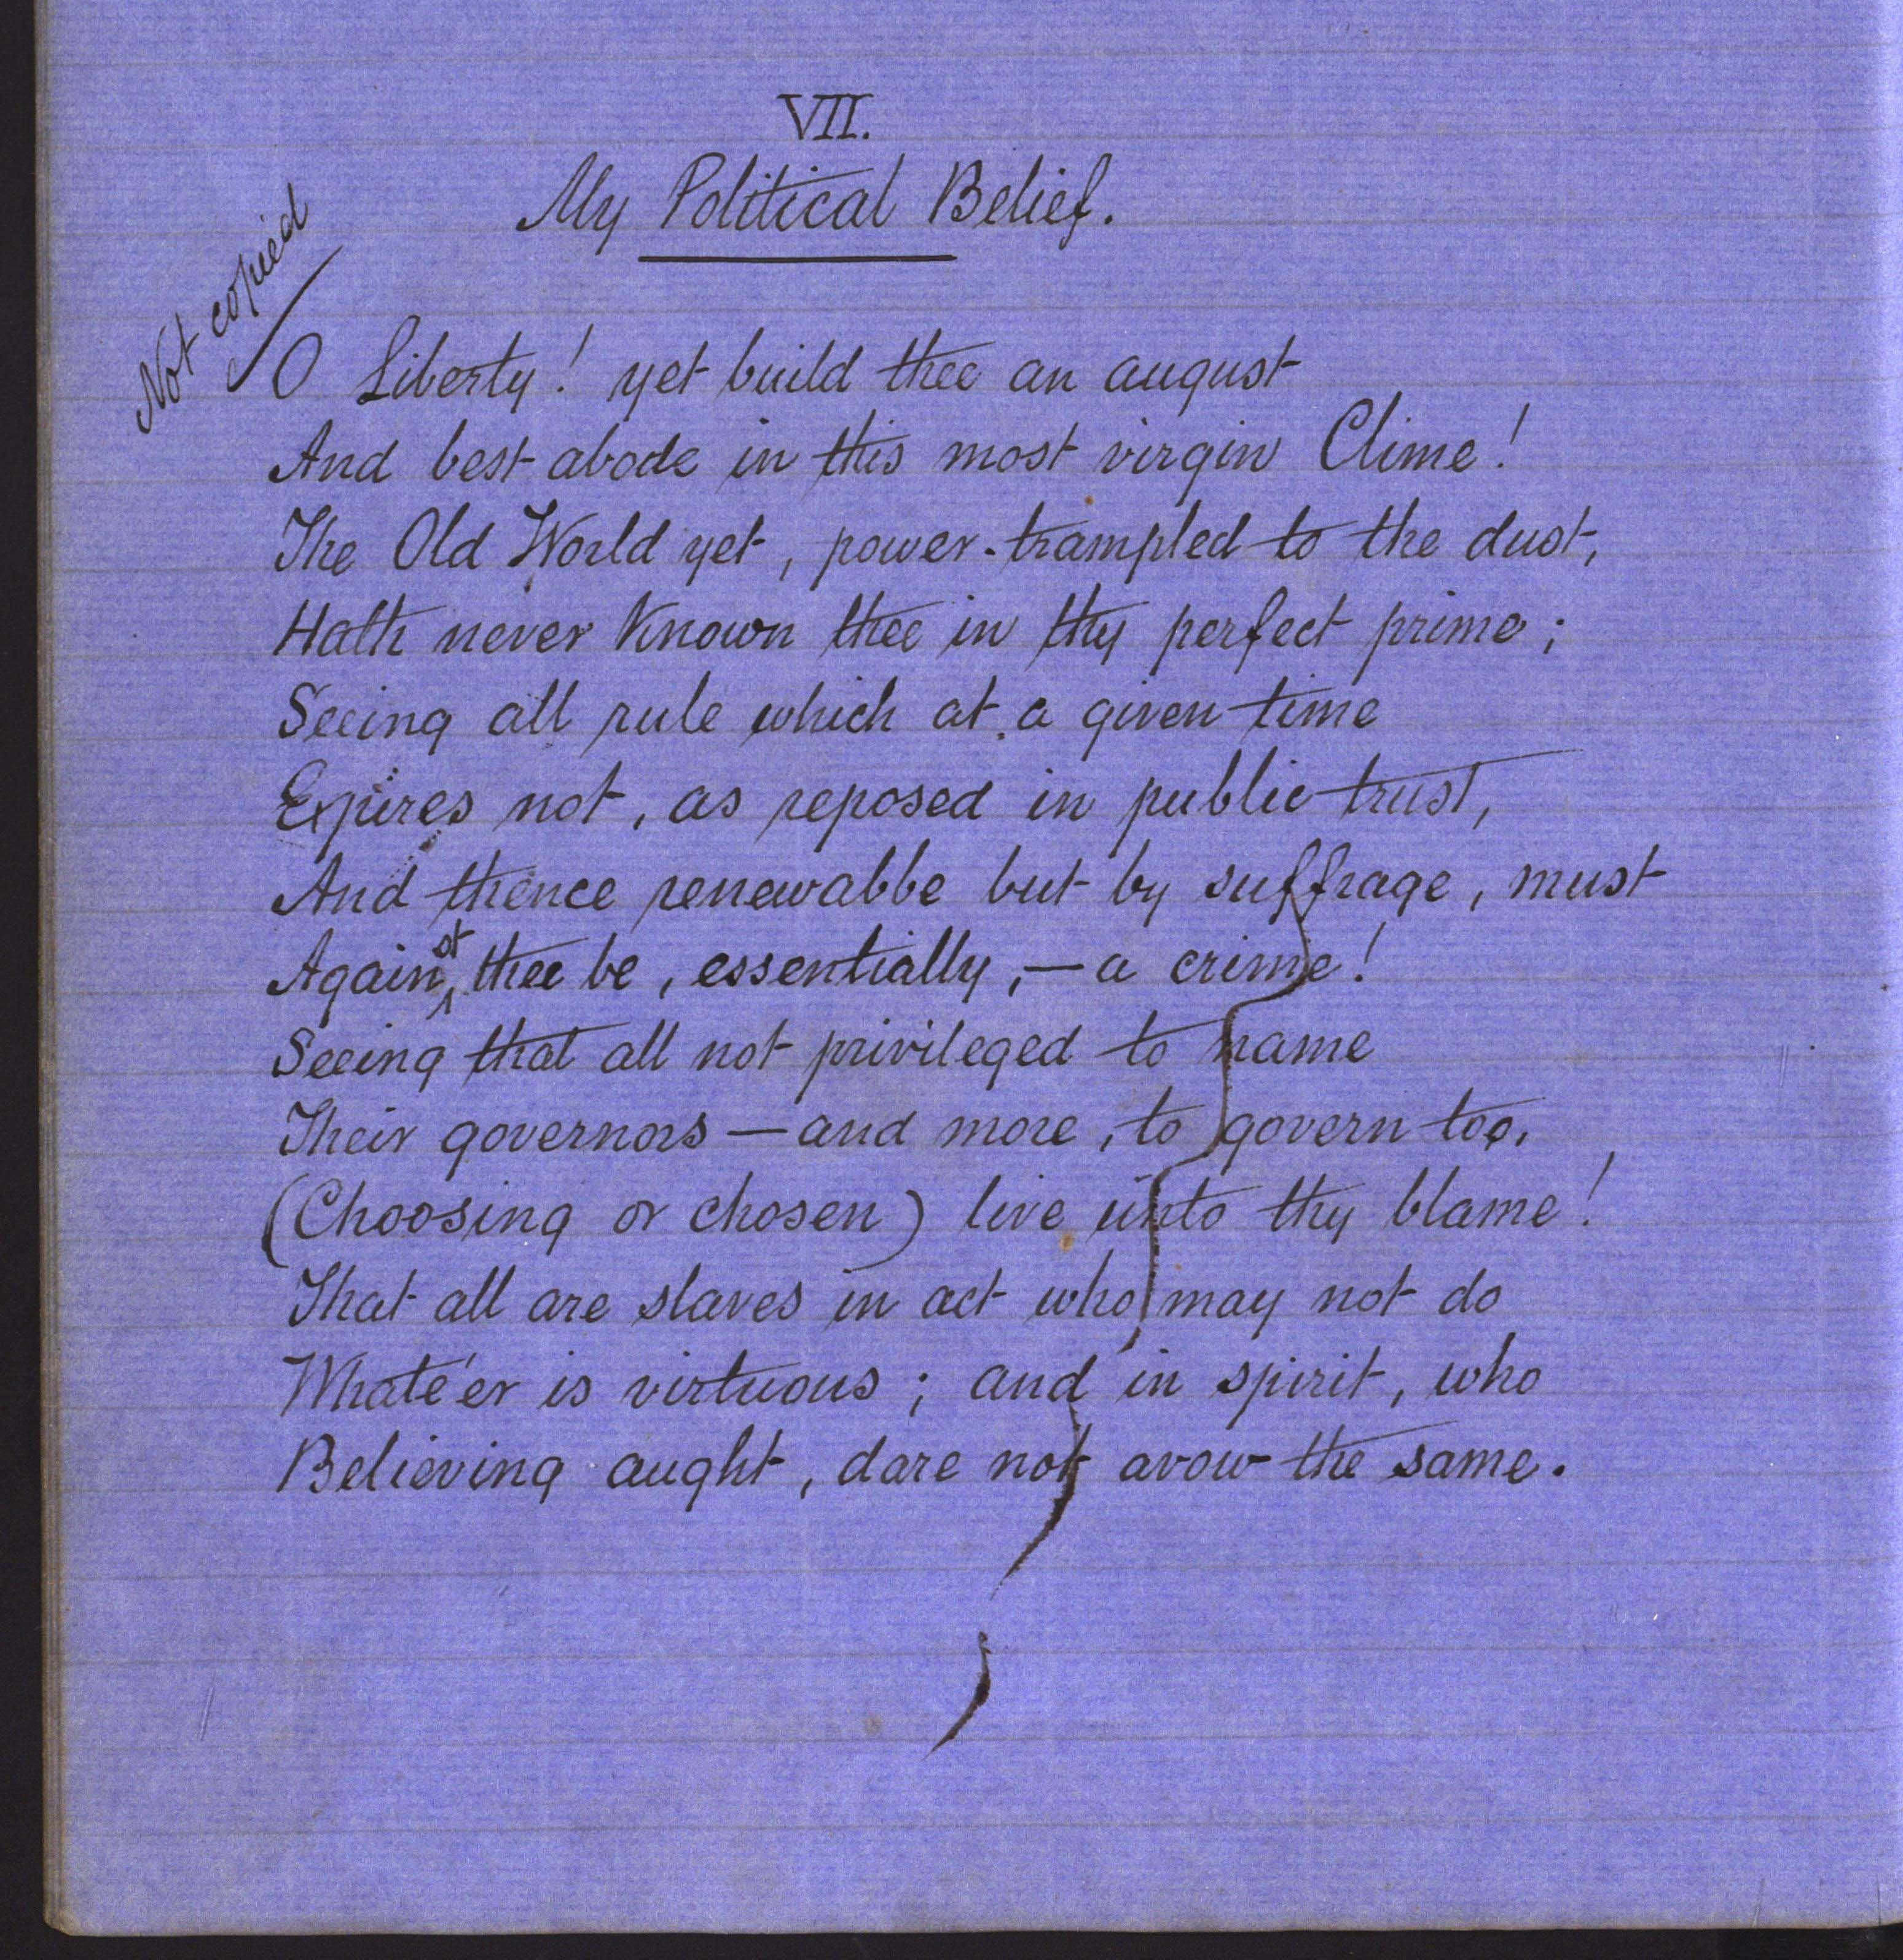 VII.
My Political Belief.
Not copied
O Liberty! yet build thee an august
And best abode in this most virgin Clime!
The Old World yet, power-trampled to the dust,
Hath never known thee in thy perfect prime;
Seeing all rule which at a given time
Expires not, as reposed in public trust,
And thence renewabbe but by suffrage, must
Against thee be, essentially,—a crime!
Seeing that all not privileged to name
Their governors—and more, to govern too,
(Choosing or chosen) live unto thy blame!
That all are slaves in act who may not do
Whate'er is virtuous; and in spirit, who
Believing aught, dare not avow the same.